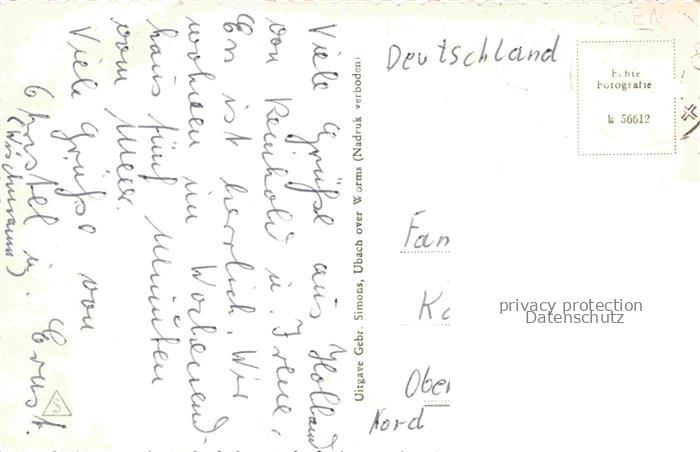 Viele Grüße aus Holland
von Reinhold u. Irene,
Es ist herrlich. Wir
wohnen im Wochenend-
haus fünf Minuten
vom Meer.
Viele Grüße von
Christel u. Ernst.
(Wischmann)
Uitgave Gebr. Simons, Ubach over Worms (Nadruk verboden)
Deutschland
Echte
Fotografie
k 56612
Fam
Ka
Ober
Nord
privacy protection
Datenschutz